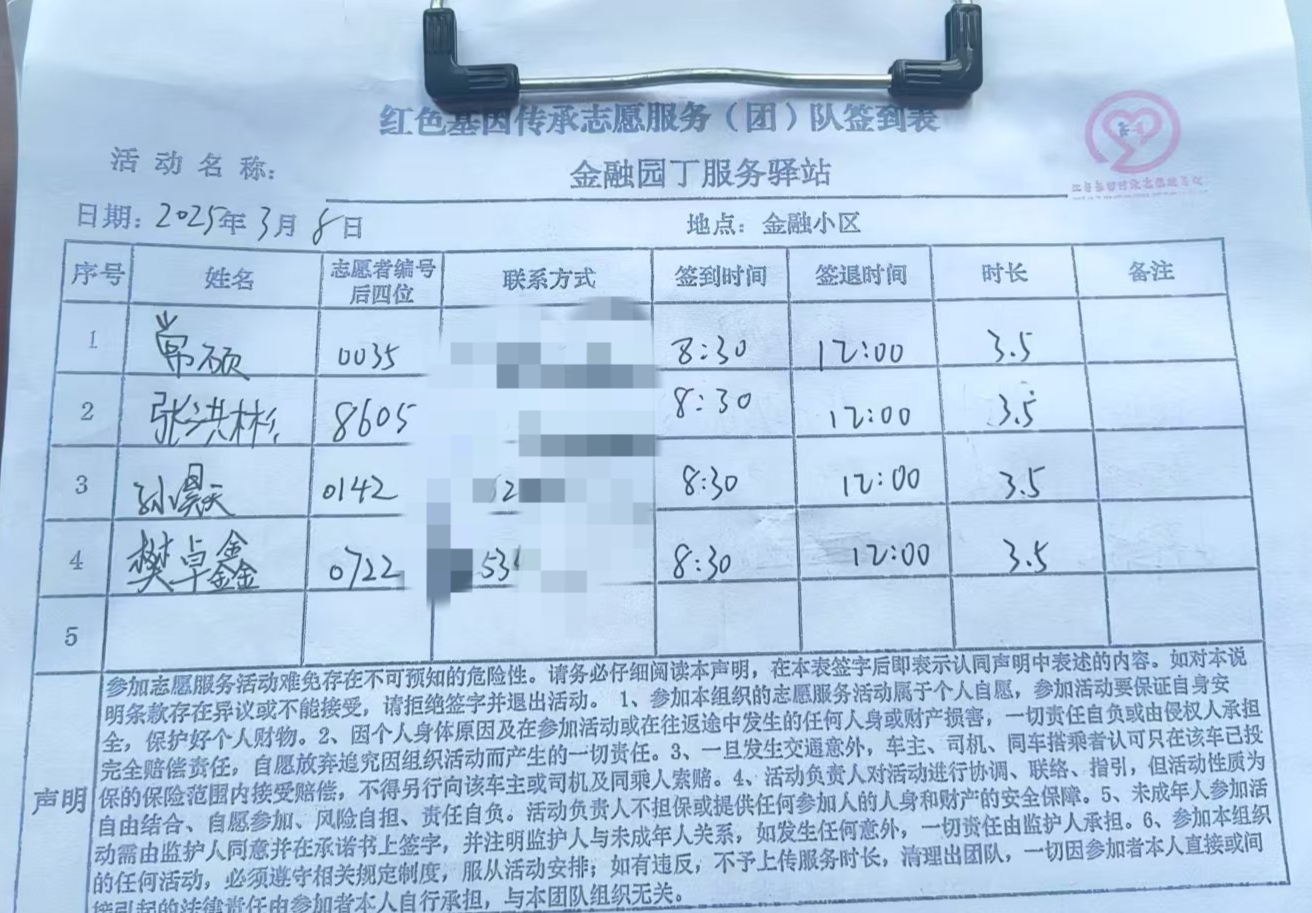 红色基因传承志愿服务（团）队签到表
活动名称：
金融园丁服务驿站
日期：2025年3月8日
地点：金融小区
序号 姓名 志愿者编号后四位 联系方式 签到时间 签退时间 时长 备注
1 常硕 0035 8:30 12:00 3.5
2 张洪彬 8605 8:30 12:00 3.5
3 孙昊天 0142 8:30 12:00 3.5
4 樊卓鑫 0722 53 8:30 12:00 3.5
5
声明
参加志愿服务活动难免存在不可预知的危险性。请务必仔细阅读本声明，在本表签字后即表示认同声明中表述的内容。如对本说
明条款存在异议或不能接受，请拒绝签字并退出活动。1、参加本组织的志愿服务活动属于个人自愿，参加活动要保证自身安
全，保护好个人财物。2、因个人身体原因及在参加活动或在往返途中发生的任何人身或财产损害，一切责任自负或由侵权人承担
完全赔偿责任，自愿放弃追究因组织活动而产生的一切责任。3、一旦发生交通意外，车主、司机、同车搭乘者认可只在该车已投
保的保险范围内接受赔偿，不得另行向该车主或司机及同乘人索赔。4、活动负责人对活动进行协调、联络、指引，但活动性质为
自由结合、自愿参加、风险自担、责任自负。活动负责人不担保或提供任何参加人的人身和财产的安全保障。5、未成年人参加活
动需由监护人同意并在承诺书上签字，并注明监护人与未成年人关系，如发生任何意外，一切责任由监护人承担。6、参加本组织
的任何活动，必须遵守相关规定制度，服从活动安排；如有违反，不予上传服务时长，清理出团队，一切因参加者本人直接或间
接引起的法律责任由参加者本人自行承担，与本团队组织无关。